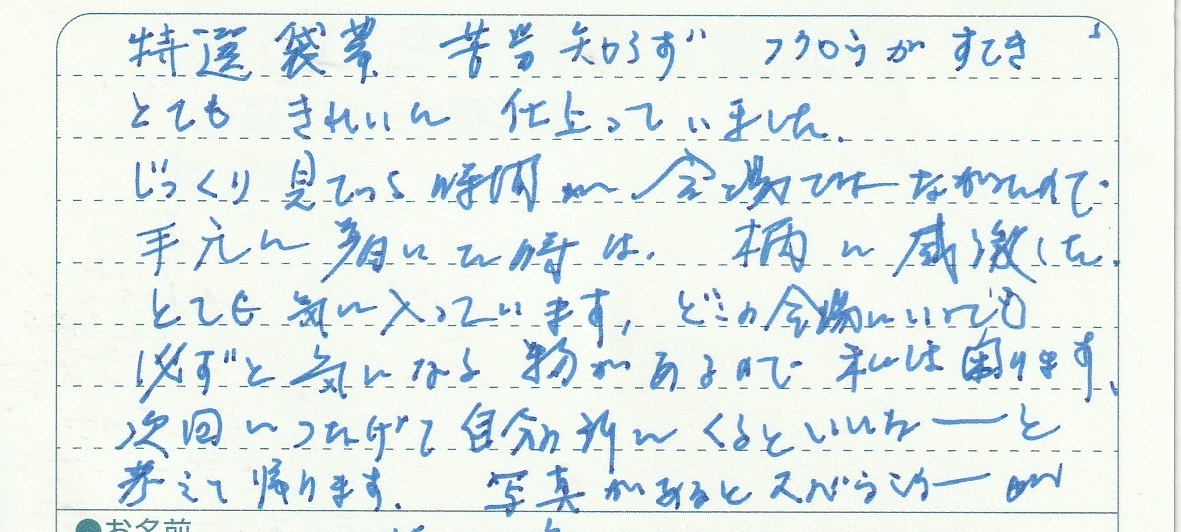 特選 袋帯 苦労知らず フクロウが すてき
とても きれいに 仕上っていました.
じっくり 見ている 時間が 会場では なかったので
手元に 届いた時は. 柄に 感激した.
とても 気に入っています, どこの会場にいっても
必ずと 気になる 物が あるので 私は 困ります、
次回につなげて 自分の所に くるといいなーと
考えて 帰ります. 写真があると スバラシー
●お名前